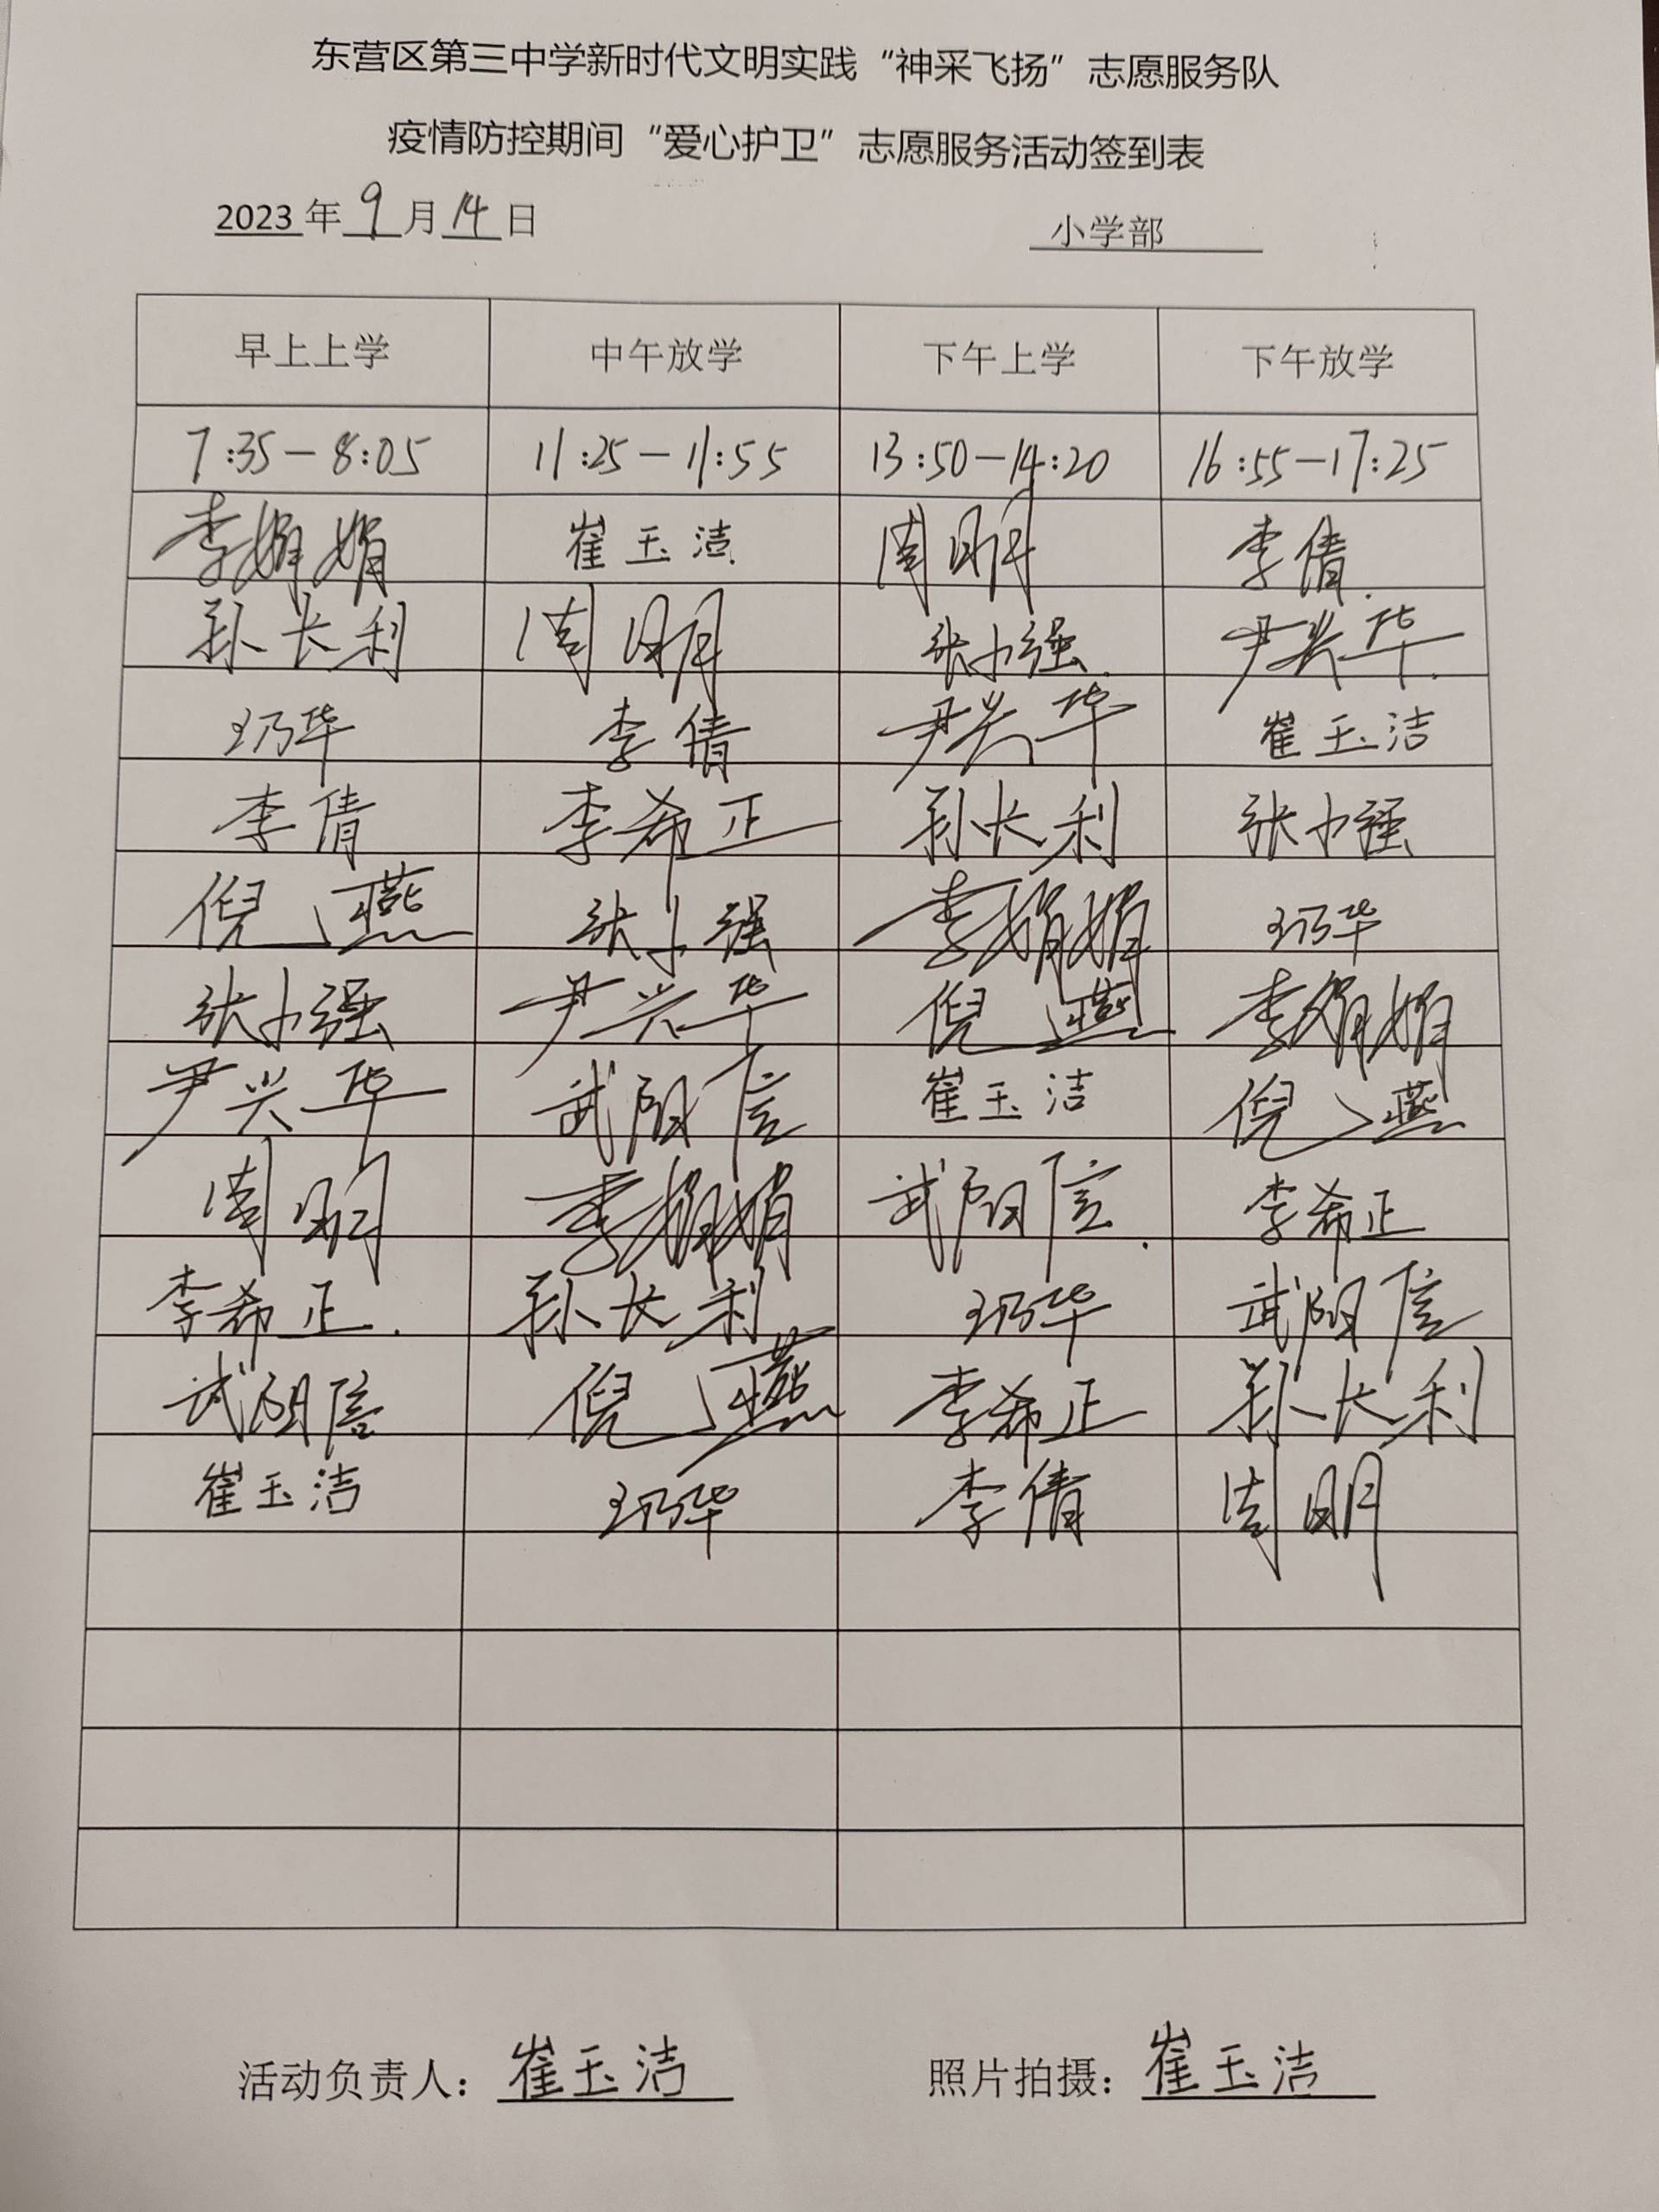 东营区第三中学新时代文明实践“神采飞扬”志愿服务队
疫情防控期间“爱心护卫”志愿服务活动签到表
2023年9月14日 小学部
早上上学 中午放学 下午上学 下午放学
7:35-8:05 11:25-11:55 13:50-14:20 16:55-17:25
李娟娟 崔玉洁 周明 李倩
孙长利 周明 张小强 尹兴华
王乃华 李倩 尹兴华 崔玉洁
李倩 李希正 孙长利 张小强
倪燕 张小强 李娟娟 王乃华
张小强 尹兴华 倪燕 李娟娟
尹兴华 武阳信 崔玉洁 倪燕
周明 李娟娟 武阳信 李希正
李希正 孙长利 王乃华 武阳信
武阳信 倪燕 李希正 孙长利
崔玉洁 王乃华 李倩 周明
活动负责人：崔玉洁 照片拍摄：崔玉洁